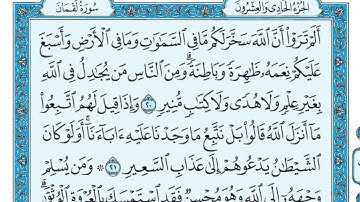 سُورَةُ لُقْمَانَ الجُزْءُ الحَادِي وَالعِشْرُونَ
أَلَمْ تَرَوْا۟ أَنَّ ٱللَّهَ سَخَّرَ لَكُم مَّا فِى ٱلسَّمَٰوَٰتِ وَمَا فِى ٱلْأَرْضِ وَأَسْبَغَ
عَلَيْكُمْ نِعَمَهُۥ ظَٰهِرَةً وَبَاطِنَةً ۗ وَمِنَ ٱلنَّاسِ مَن يُجَٰدِلُ فِى ٱللَّهِ
بِغَيْرِ عِلْمٍ وَلَا هُدًى وَلَا كِتَٰبٍ مُّنِيرٍ ٢٠ وَإِذَا قِيلَ لَهُمُ ٱتَّبِعُوا۟
مَآ أَنزَلَ ٱللَّهُ قَالُوا۟ بَلْ نَتَّبِعُ مَا وَجَدْنَا عَلَيْهِ ءَابَآءَنَآ ۚ أَوَلَوْ كَانَ
ٱلشَّيْطَٰنُ يَدْعُوهُمْ إِلَىٰ عَذَابِ ٱلسَّعِيرِ ٢١ ۞ وَمَن يُسْلِمْ
وَجْهَهُۥٓ إِلَى ٱللَّهِ وَهُوَ مُحْسِنٌ فَقَدِ ٱسْتَمْسَكَ بِٱلْعُرْوَةِ ٱلْوُثْقَىٰ ۗ